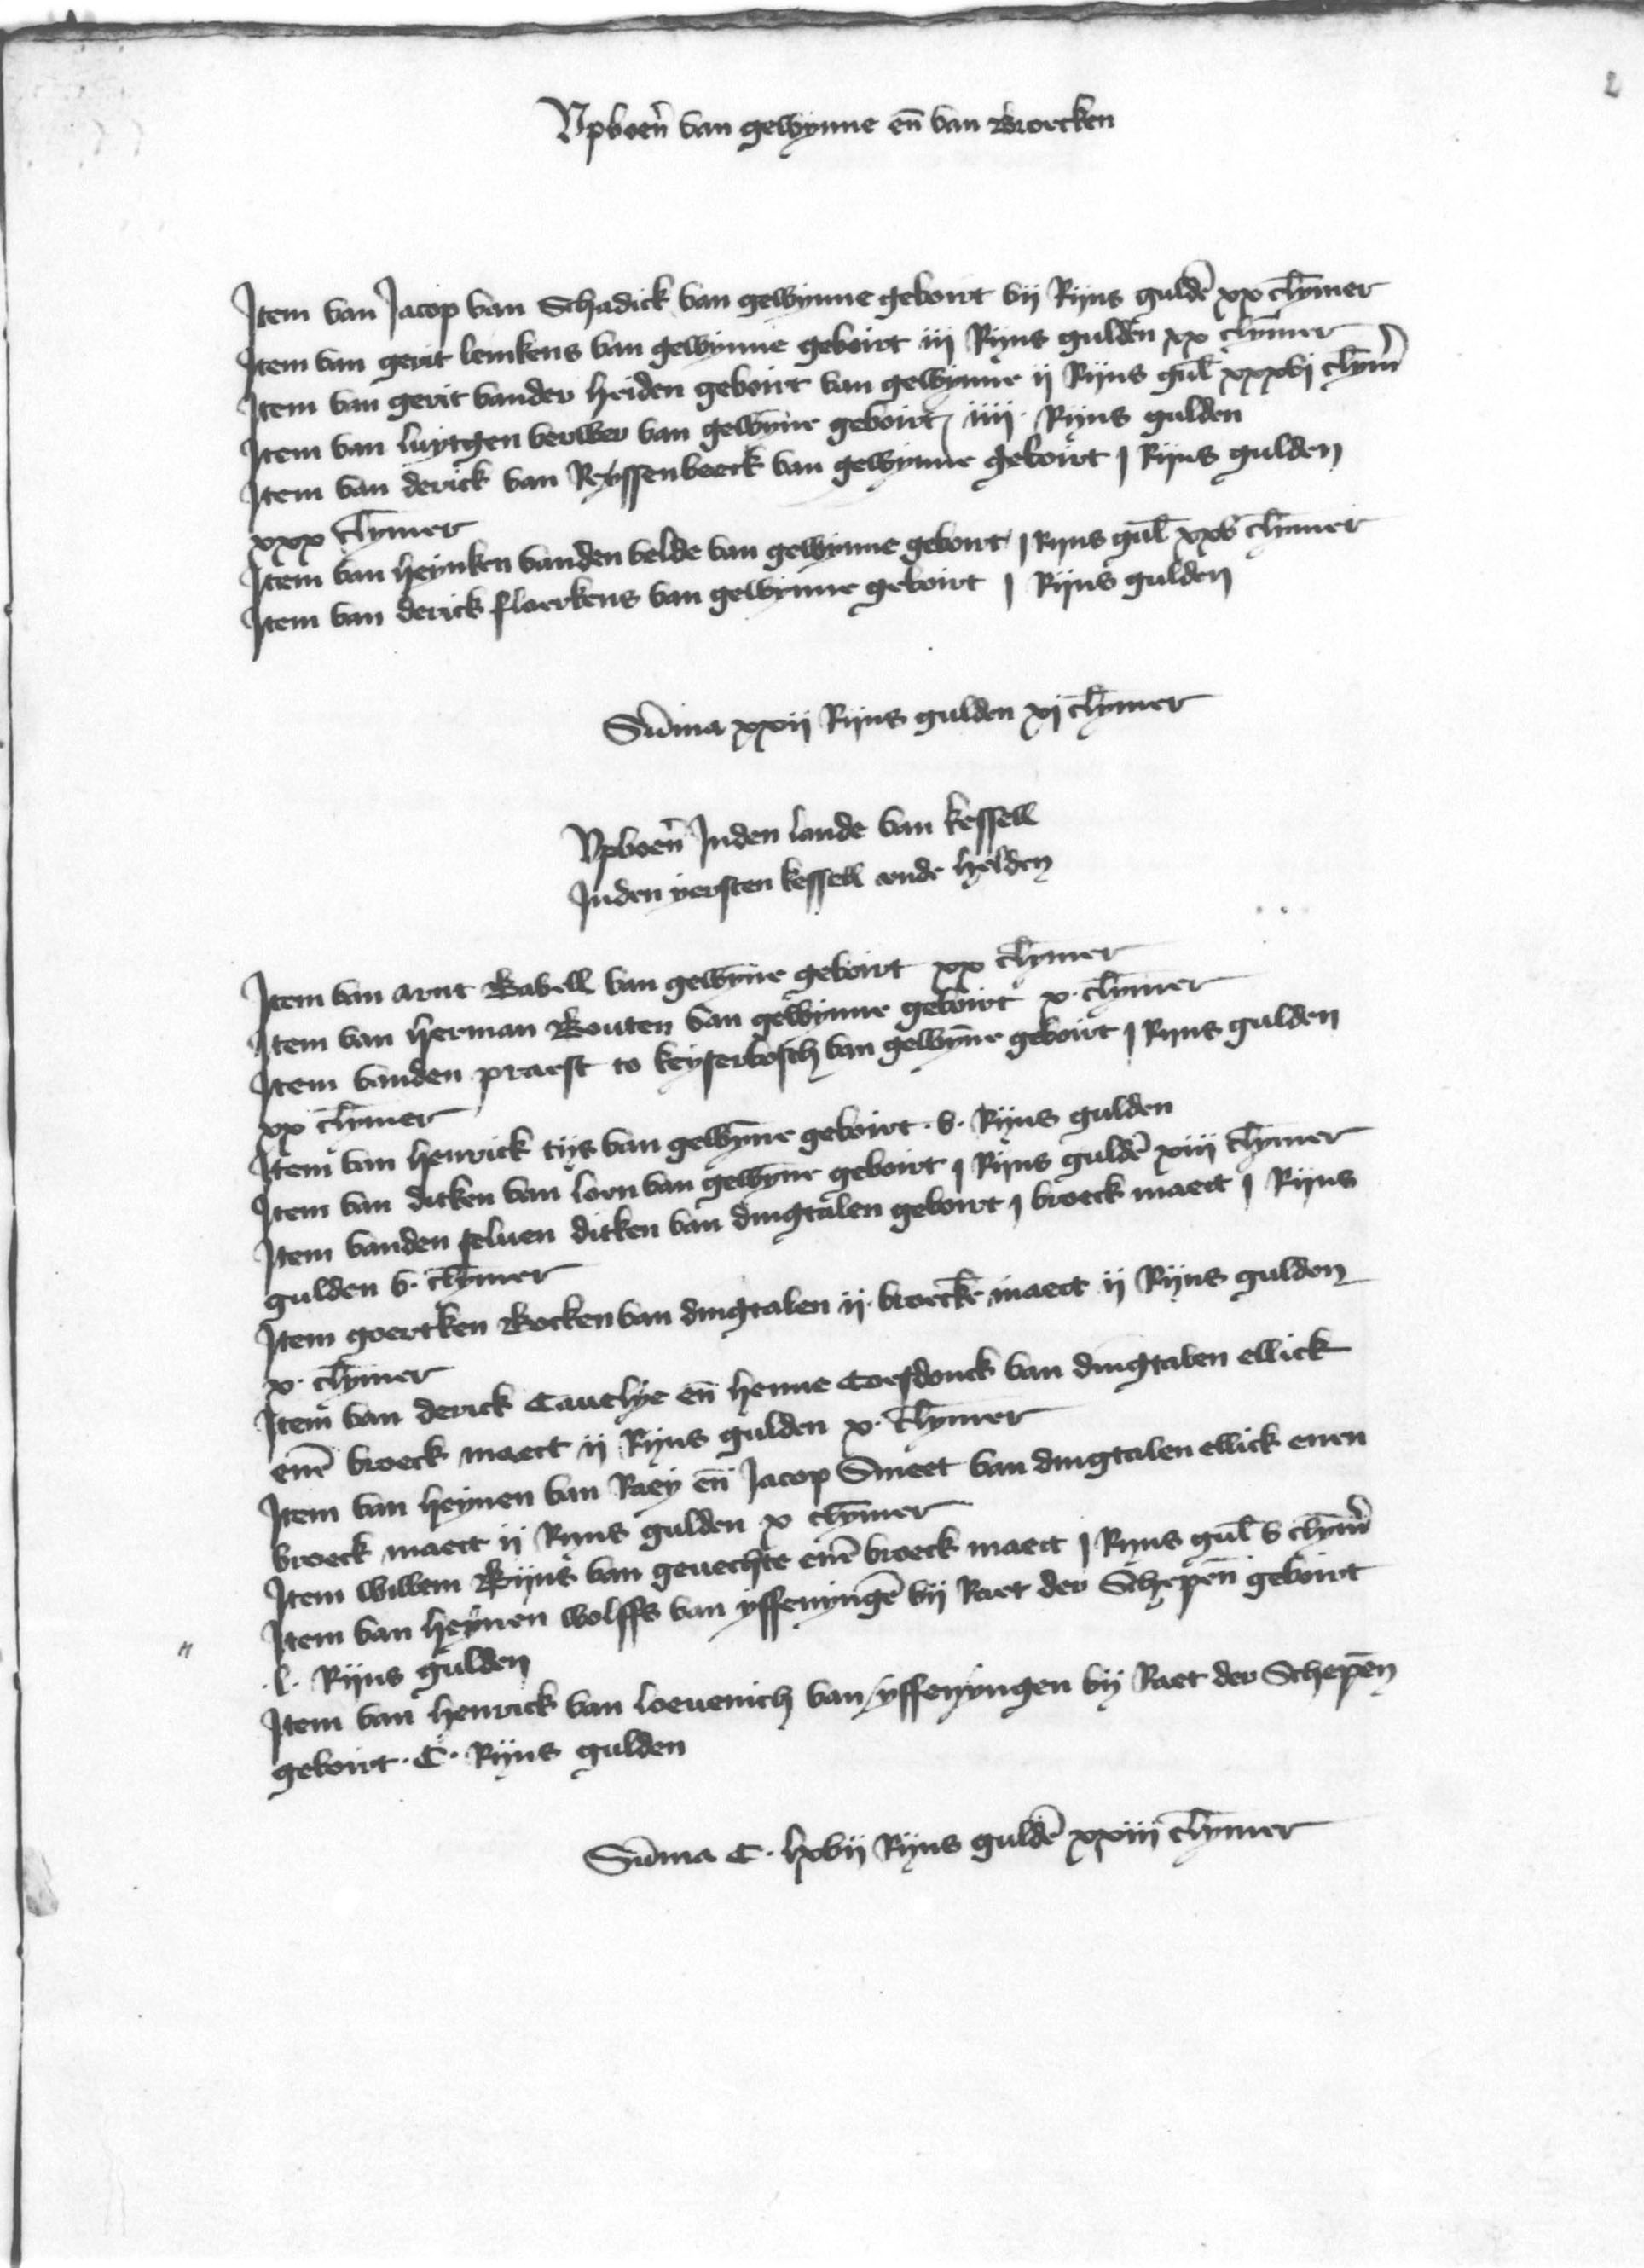 2
Upboen̄ van gewynne en̄ van Broecken
Item van Jacop van Schadick van gewynne geboirt vij Rijns guldē xx clymer
Item van gerit lemkens van gewynne geboirt iij Rijns gulden xx clymer
Item van gerit vander heiden geboirt van gewynne ij Rijns gul̄ xxxvj clym̄
Item van luytgen verwer van gewyn̄e geboirt iiij Rijns gulden
Item van derick van Ryssenbeeck van gewynne geboirt j Rijns gulden
xxx clymer
Item van heynken vanden velde van gewynne geboirt j Rijns gul̄ xxv clymer
Item van derick floerkens van gewynne geboirt j Rijns gulden
Sum̄a xxij Rijns gulden xj clymer
Upboen̄ Inden lande van kessell
Inden yersten kessell ende helden
Item van arnt Bavell van gewyn̄e geboirt xx clymer
Item van herman Bouten van gewynne geboirt x· clymer
Item vanden praest to keyserbosch van gewyn̄e geboirt j Rijns gulden
xx clymer
Item van henrick tijs van gewyn̄e geboirt ·v· Rijns gulden
Item van ditken van loen van gewyn̄e geboirt j Rijns guldē xiij clymer
Item vanden seluen ditken van dingtalen geboirt j broeck maect j Rijns
gulden v· clymer
Item goertken Bocken van dingtalen ij· broecke maect ij Rijns gulden
x· clymer
Item van derick Cauelye en̄ henne Coesdonck van dingtalen ellick
enē broeck maect ij Rijns gulden x· clymer
Item van heynen van Raey en̄ Jacop Smeet van dingtalen ellick enen
broeck maect ij Rijns gulden x clymer
Item willem Rijns van geuechte enē broeck maect j Rijns gul̄ v clym̄
Item van heynen wolffs van yssenyngē bij Raet der Schepen̄ geboirt
·l· Rijns gulden
Item van henrick van loeuenich van yssenyngen bij Raet der Schepēn
geboirt ·C· Rijns gulden
Sum̄a C· lxvij Rijns guldē xxiij clymer